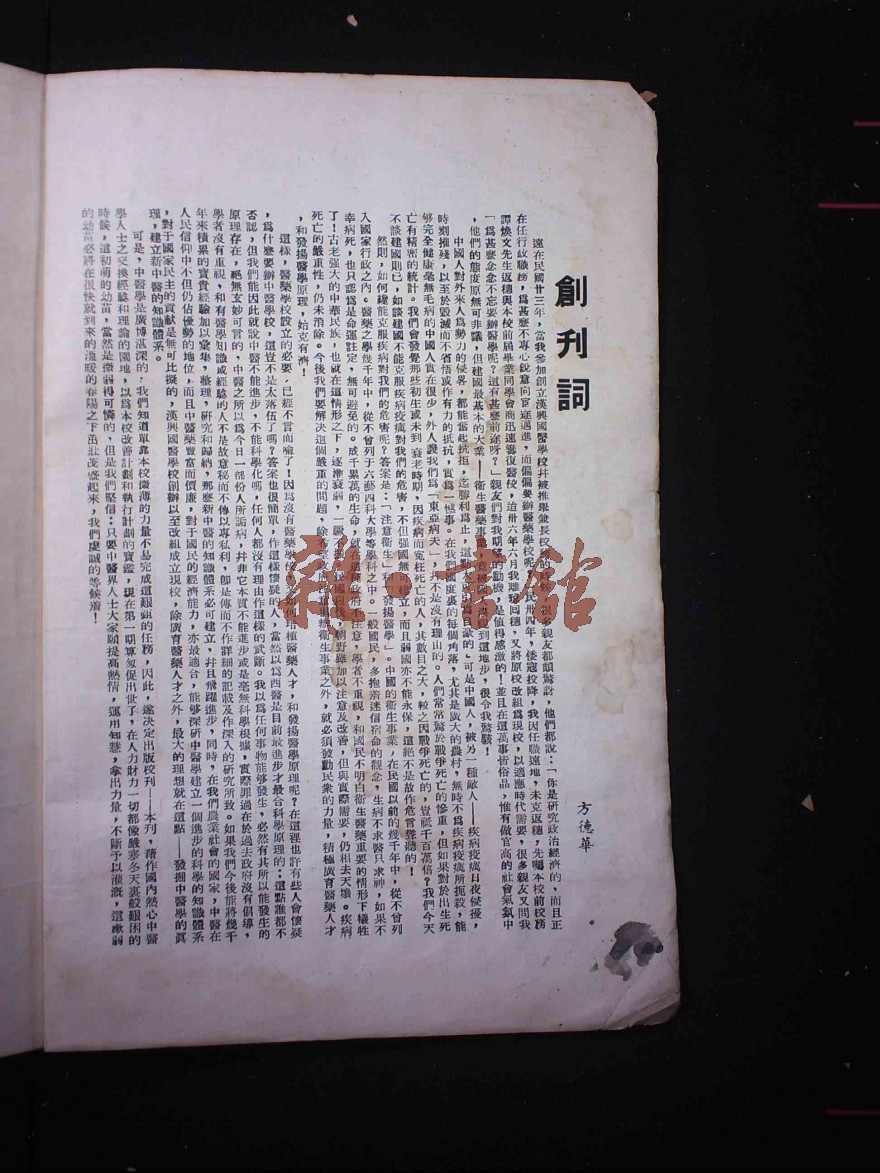 創刊詞
方德華
遠在民國廿三年,當我參加創立漢興國醫學校幷被推舉兼長校務的時候,很多親友都頗驚訝,他們都說:「你是研究政治經濟的,而且正
在任行政職務,爲甚麽不專心銳意向宦途邁進,而偏偏要辦醫藥學校呢?」民卅四年,倭寇投降,我因任職遠地,未克返穗,先囑本校前校務
譚煥文先生返穗與本校前屆畢業同學會商迅速籌復醫校,迨卅六年六月我離
「爲甚麽念念不忘要辦醫學呢?這有甚麽前途呀?」親友們對我期望的動機,是值得感激的!並且在這萬事皆俗品,惟有做官高的社會氣氛中
,他們的態度原無可非議,但建國最基本的大業——衛生醫藥事業
中國人對外來人爲勢力的侵畧,都能奮起抗拒,迄勝利爲止,這點
時刻摧殘,以至於毀滅而不省悟或作有力的抵抗,實爲一憾事。在我們國度裏的每個角落,尤其是廣大的農村,無時不爲疾病疫癘所扼殺,能
够完全健康毫無毛病的中國人實在很少,外人說我們爲「東亞病夫」,并不是沒有理由的。人們常常驚於戰爭死亡的慘重,但如果對於出生死
亡有精密的統計。我們會發覺那些初生或未到衰老時期,因疾病而寃枉死亡的人,其數目之大,較之因戰爭死亡的,豈祇千百萬倍?我們今天
不談建國則已,如談建國不能克服疾病疫癘對我們的危害,不但强國無可建立,而且弱國亦不能永保,這絕不是故作危言聳聽的!
然則,如何纔能克服疾病對我們的危害呢?答案是:「注意衛生」和「發揚醫學」。中國的衛生事業,在民國以前的幾千年中,從不曾列
入國家行政之內。醫藥之學幾千年中,從不曾列于六藝四科大學等學科之中。一般國民,多抱着迷信宿命的觀念,生病不求醫只求神,如果不
幸病死,也只認爲是命運註定,無可避免的。成千累萬的生命,就在這種政府不注意,學者不重視,和國民不明白衛生醫藥重要的情形下犧牲
了!古老强大的中華民族,也就在這情形之下,逐漸衰弱,一蹶
死亡的嚴重性,仍未消除。今後我們要解決這個嚴重的問題,除
,和發揚醫學原理,始克有濟!
這樣,醫藥學校設立的必要,已經不言而喻了!因爲沒有醫藥學校,又如何培植醫藥人才,和發揚醫學原理呢?在這裡也許有些人會懷疑
,爲什麽要辦中醫學校,這豈不是太落伍了嗎?答案也很簡單,作這樣懷疑的人,當然以爲西醫是目前最進步才最合科學原理的;這點誰都不
否認,但我們能因此就說中醫不能進步,不能科學化嗎,任何人都沒有理由作這樣的武斷。我以爲任何事物能够發生,必然有其所以能發生的
原理存在,絕無玄妙可言的,中醫之所以爲今日一部份人所詬病,幷非它本質不能進步或是毫無科學根據,實際罪過在於過去政府沒有倡導,
學者沒有重視,和有醫學知識或經驗的人不是故意秘而不傳以專私利,卽是傳而不作詳細的記載及作深入的研究所致。如果我們今後能將幾千
年來積累的寶貴經驗加以彙集,整理,研究和歸納,那麽新中醫的知識體系必可建立,幷且飛躍進步,同時,在我們農業社會的國家,中醫在
人民信仰中不但仍佔優勢的地位,而且中醫藥豐富而價廉,對于國民的經濟能力,亦最適合,能够深研中醫學建立一個進步的科學的知識體系
,對于國家民主的貢献是無可比擬的,漢興國醫學校創辦以至改組成立現校,除廣育醫藥人才之外,最大的理想就在這點——發掘中醫學的眞
理,建立新中醫的知識體系。
可是,中醫學是廣博湛深的,我們知道單靠本校微薄的力量不易完成這艱鉅的任務,因此,遂決定出版校刊——本刊,藉作國內熱心中醫
學人士之交換經驗和理論的園地,以爲本校改善計劃和執行計劃的寶鑑,現在第一期算匆促出世了,在人力財力一切都像嚴寒冬天裏般艱困的
時候,這初萌的幼苗,當然是微弱得可憐的,但是我們堅信:只要中醫界人士大家願提高熱情,運用知慧,拿出力量,不斷予以灌漑,這嫩弱
的幼苗必將在很快就到來的溫暖的春陽之下茁壯茂盛起來,我們虔誠的等候着!